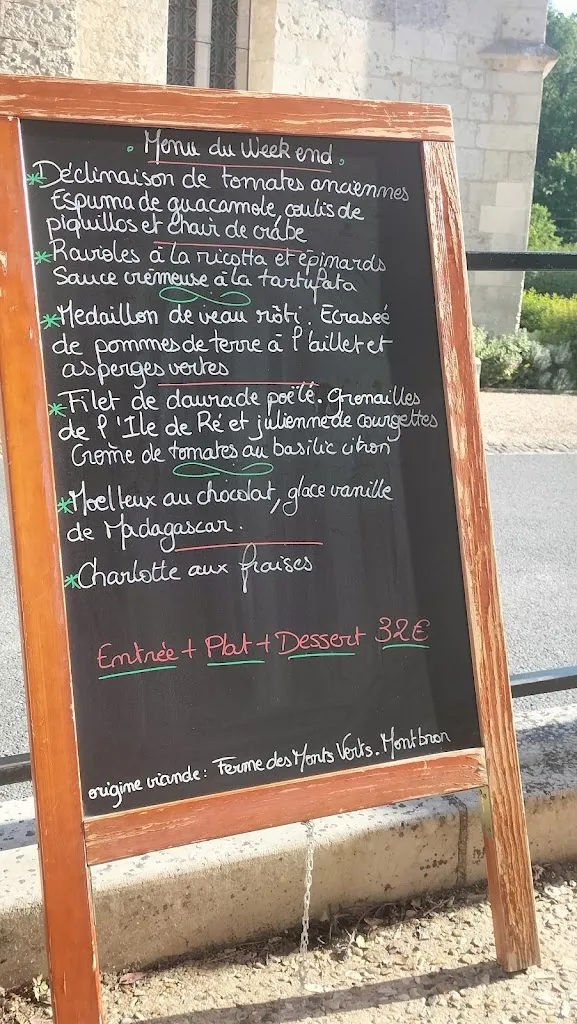 Menu du Week end
* Déclinaison de tomates anciennes
Espuma de guacamole, coulis de
piquillos et chair de crabe
* Ravioles à la ricotta et épinards
Sauce crèmeuse à la tartufata
* Medaillon de veau rôti. Ecraseé
de pommes de terre à l'aillet et
asperges vertes
* Filet de daurade poëlé. Grenailles
de l'Ile de Ré et julienne de courgettes
Crème de tomates au basilic citron
* Moelleux au chocolat, glace vanille
de Madagascar.
* Charlotte aux fraises
Entrée + Plat + Dessert 32€
origine viande : Ferme des Monts Verts. Montbron